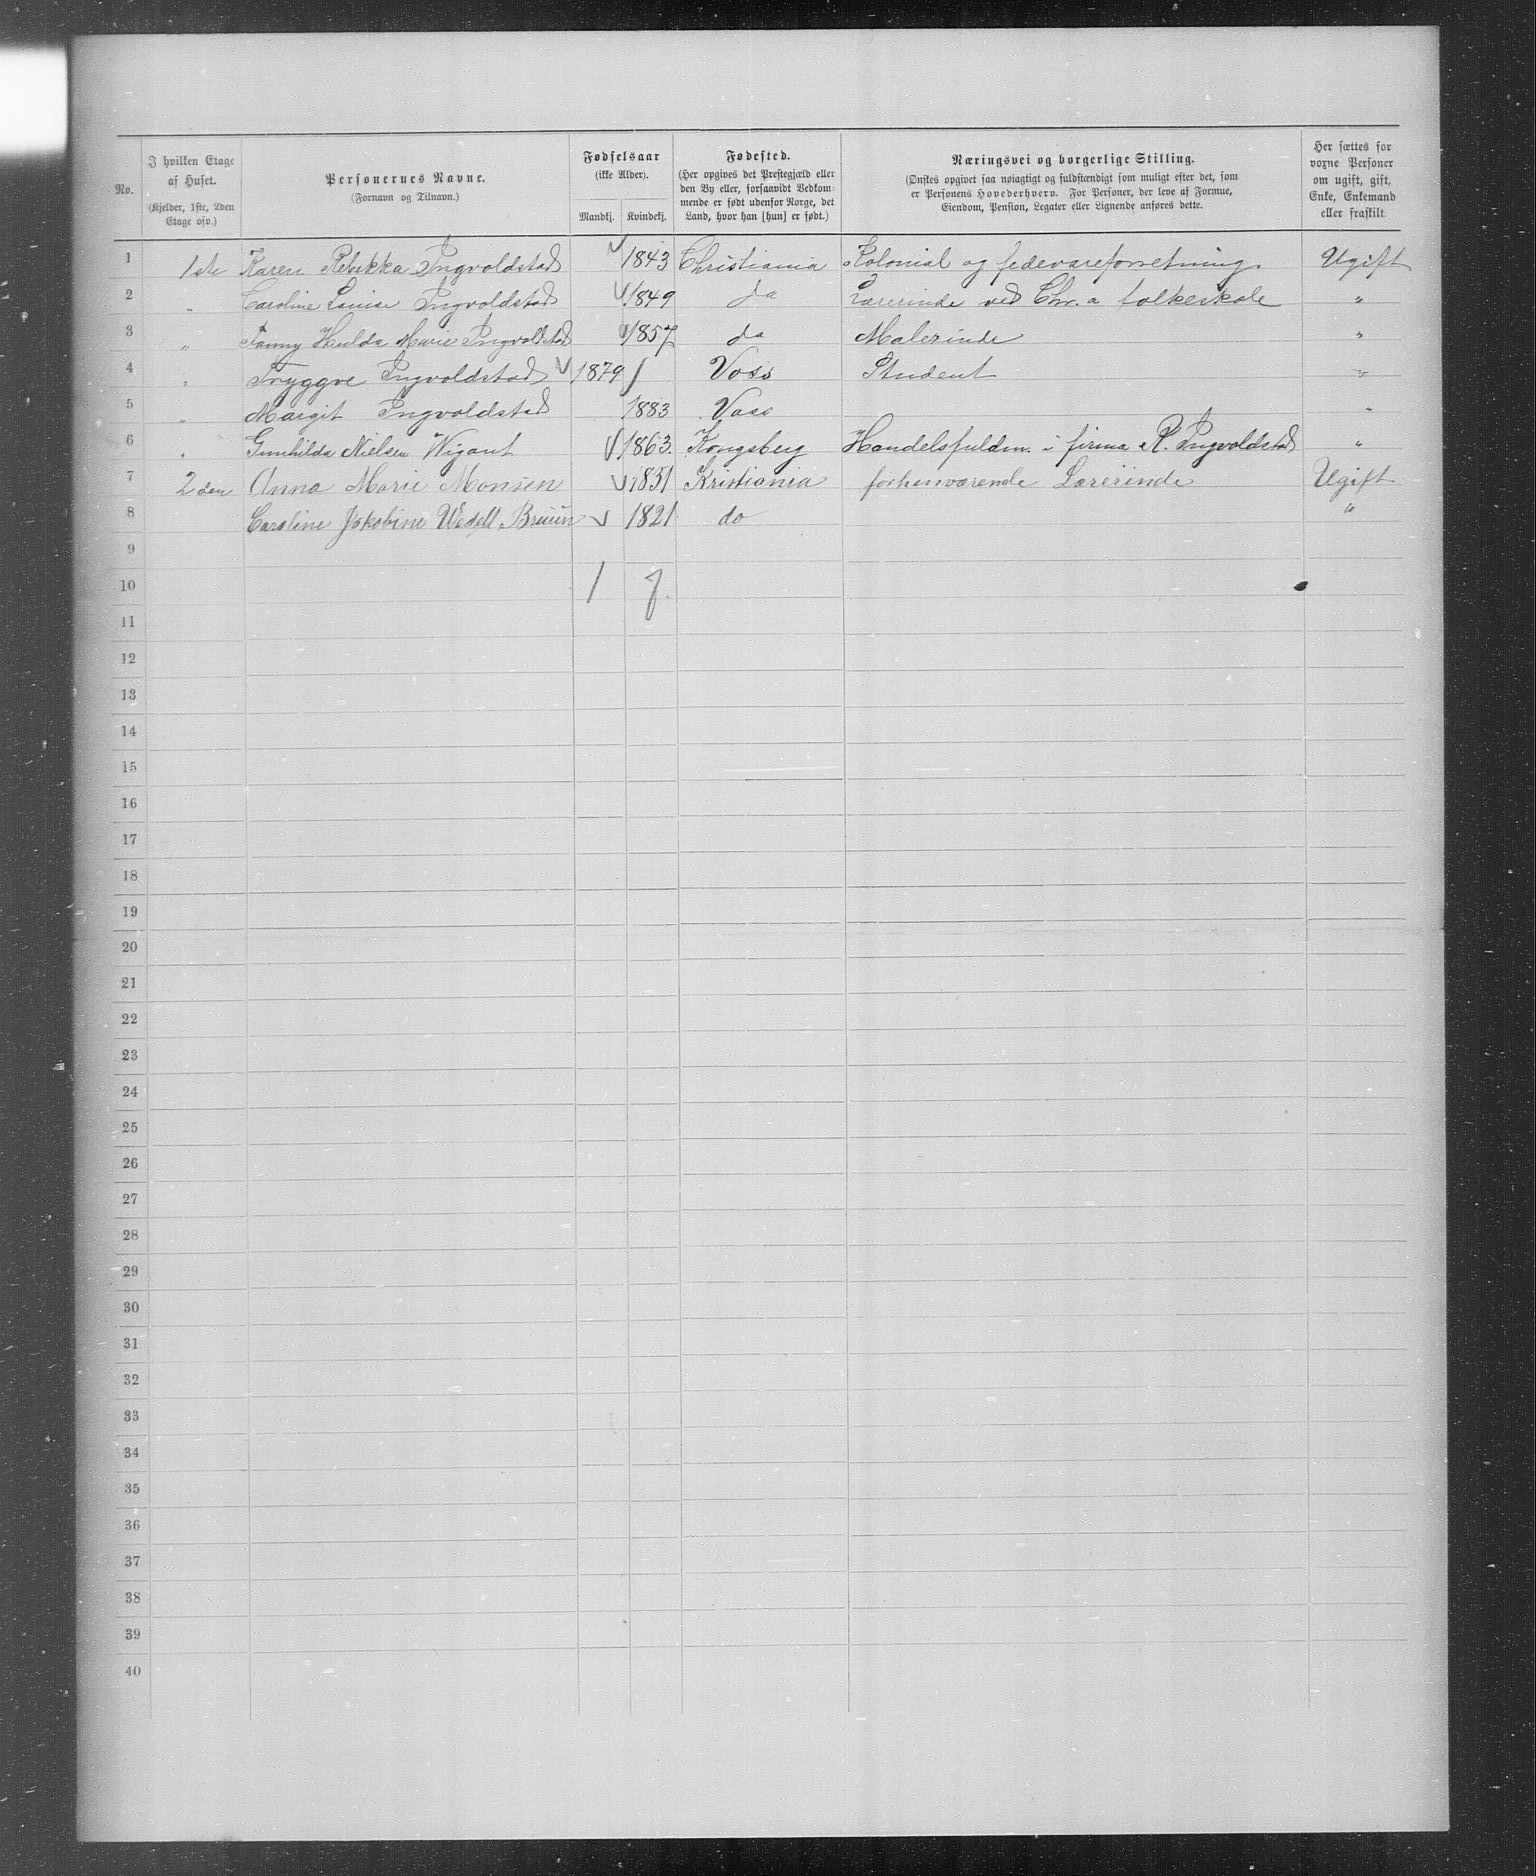 No.
I hvilken Etage
af Huset.
(Kjelder, 1ste, 2den
Etage osv.)
Personernes Navne.
(Fornavn og Tilnavn.)
Fødselsaar
(ikke Alder).
Mandkj. Kvindekj.
Fødested.
(Her opgives det Prestegjæld eller
den By eller, forsaavidt Vedkom-
mende er født udenfor Norge, det
Land, hvor han [hun] er født.)
Næringsvei og borgerlige Stilling.
(Ønskes opgivet saa nøiagtigt og fuldstændigt som muligt efter det, som
er Personens Hovederhverv. For Personer, der leve af Formue,
Eiendom, Pension, Legater eller Lignende anføres dette.
Her sættes for
voxne Personer
om ugift, gift,
Enke, Enkemand
eller fraskilt.
1 1ste Karen Rebekka Ingvoldstad 1843 Christiania Kolonial og fedevareforretning Ugift
2 " Caroline Louise Ingvoldstad 1849 do Lærerinde ved Chr.a folkeskole "
3 " Fanny Hulda Marie Ingvoldstad 1857 do Malerinde "
4 " Tryggve Ingvoldstad 1879 Voss Student "
5 " Margit Ingvoldstad 1883 Voss "
6 " Gunhilda Nielsen Wigant 1863. Kongsberg Handelsfuldm. i firma R. Ingvoldstad "
7 2den Anna Marie Monsen 1831 Kristiania forhenværende Lærerinde Ugift
8 Caroline Jakobine Wedell Bruun 1821 do "
9
10 1 7.
11
12
13
14
15
16
17
18
19
20
21
22
23
24
25
26
27
28
29
30
31
32
33
34
35
36
37
38
39
40